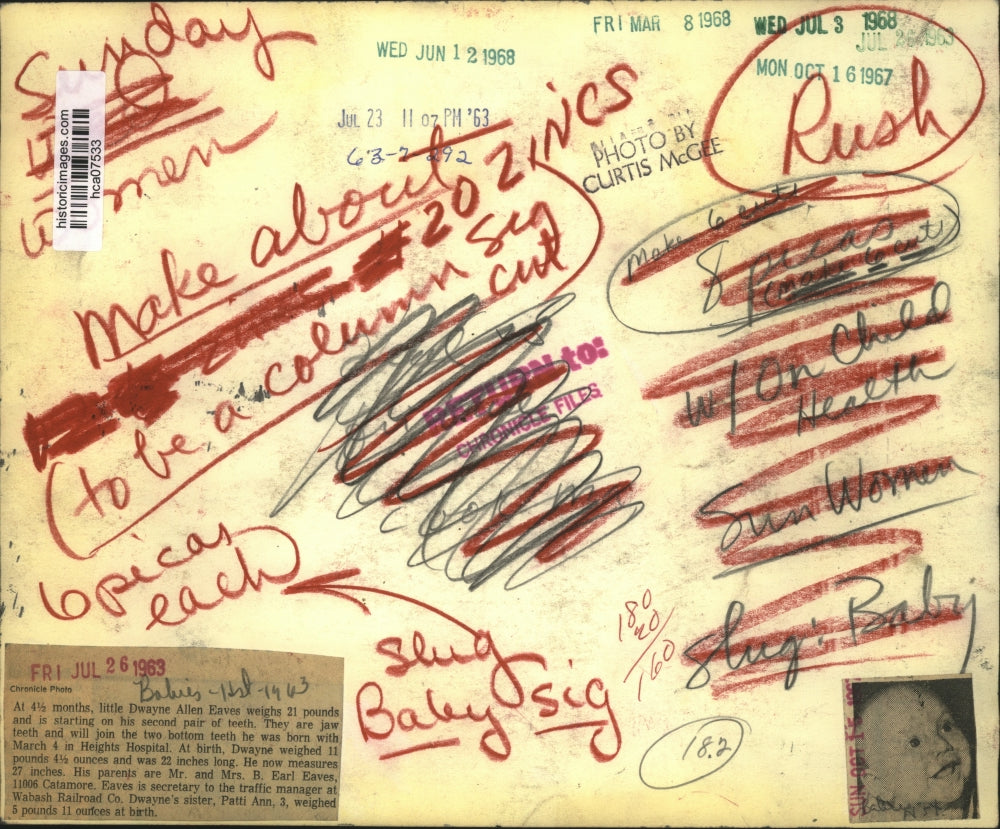 Sunday
Women
historicimages.com
hca07533
WED JUN 12 1968
FRI MAR 8 1968
WED JUL 3 1968
JUL 26 1963
MON OCT 16 1967
JUL 23 11 07 PM '63
63-7-292
PHOTO BY
CURTIS McGEE
Rush
Make about
20 zincs
(to be a column sig
cut
make 6 cuts
8 picas
(make 6 cuts)
W/ On Child
Health
Sun Women
Slug: Baby
RETURN to:
CHRONICLE FILES
6 picas
each
slug
Baby sig
180
160
18.2
FRI JUL 26 1963
Chronicle Photo
Babies - 1st - 1963
At 4½ months, little Dwayne Allen Eaves weighs 21 pounds
and is starting on his second pair of teeth. They are jaw
teeth and will join the two bottom teeth he was born with
March 4 in Heights Hospital. At birth, Dwayne weighed 11
pounds 4½ ounces and was 22 inches long. He now measures
27 inches. His parents are Mr. and Mrs. B. Earl Eaves,
11006 Catamore. Eaves is secretary to the traffic manager at
Wabash Railroad Co. Dwayne's sister, Patti Ann, 3, weighed
5 pounds 11 ounces at birth.
SUN OCT 15 1967